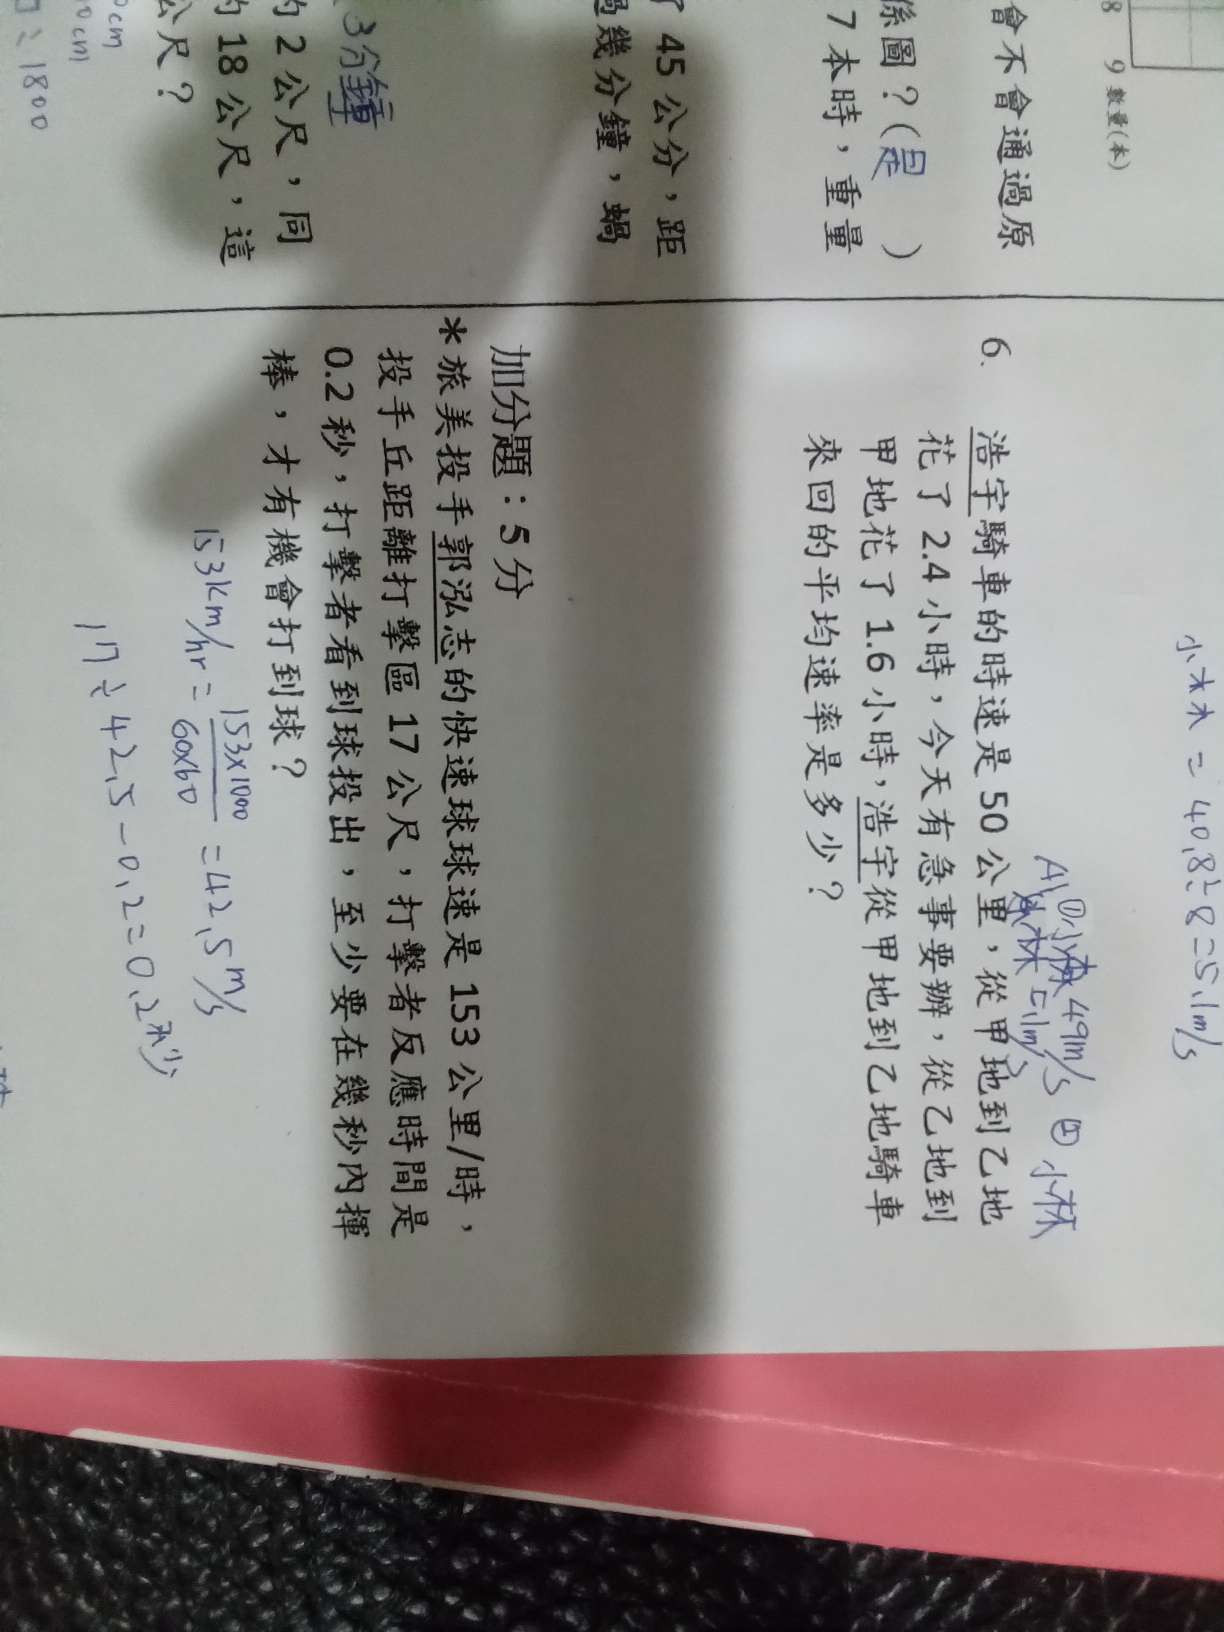 8 9 數量(本)
會不會通過原
係圖？(是 )
7本時，重量
45公分，距
過幾分鐘，蝸
3分鐘
的2公尺，同
18公尺，這
公尺？
÷1800
小林 = 40.8÷8=5.1m/s
A: ①小林 49m/s
5.1m/s
②小林
6. 浩宇騎車的時速是50公里，從甲地到乙地
花了2.4小時，今天有急事要辦，從乙地到
甲地花了1.6小時，浩宇從甲地到乙地騎車
來回的平均速率是多少？
加分題：5分
＊旅美投手郭泓志的快速球球速是153公里/時，
投手丘距離打擊區17公尺，打擊者反應時間是
0.2秒，打擊者看到球投出，至少要在幾秒內揮
棒，才有機會打到球？
153km/hr = 153x1000/60x60 = 42.5m/s
17÷42.5-0.2=0.2秒